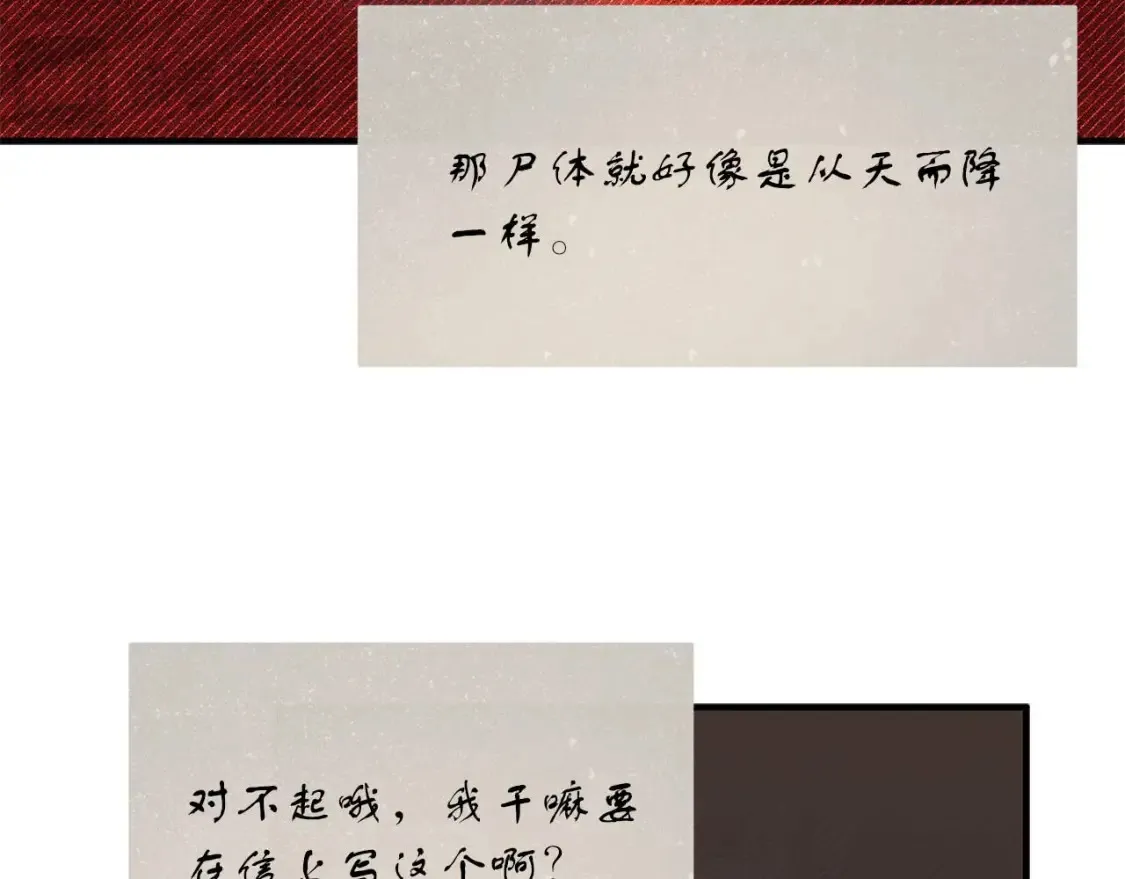 那尸体就好像是从天而降
一样。
对不起哦，我干嘛要
在信上写这个啊？